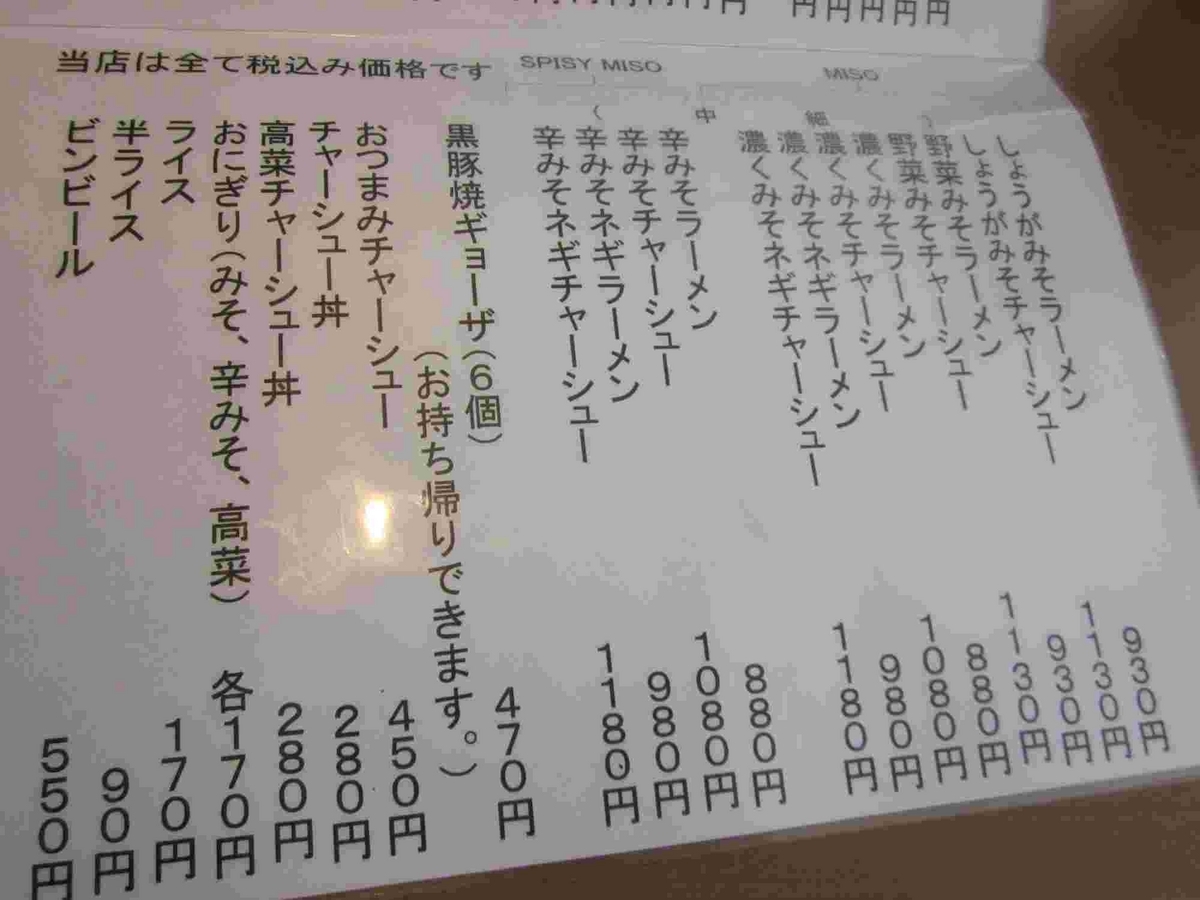 当店は全て税込み価格です
MISO
（中細）
しょうがみそラーメン 930円
しょうがみそチャーシュー 1130円
野菜みそラーメン 930円
野菜みそチャーシュー 1130円
濃くみそラーメン 880円
濃くみそチャーシュー 1080円
濃くみそネギラーメン 980円
濃くみそネギチャーシュー 1180円
SPISY MISO
辛みそラーメン 880円
辛みそチャーシュー 1080円
辛みそネギラーメン 980円
辛みそネギチャーシュー 1180円
黒豚焼ギョーザ（6個） 470円
（お持ち帰りできます。）
おつまみチャーシュー 450円
チャーシュー丼 280円
高菜チャーシュー丼 280円
おにぎり（みそ、辛みそ、高菜） 各170円
ライス 170円
半ライス 90円
ビンビール 550円